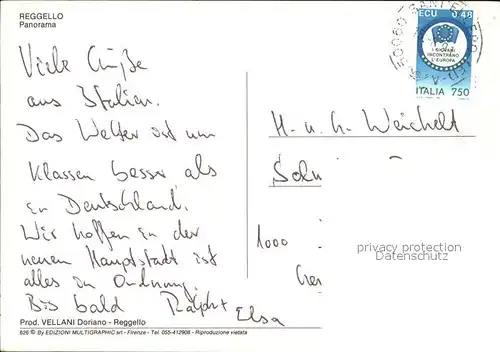 REGGELLO
Panorama
Viele Grüße
aus Italien.
Das Wetter ist um
Klassen besser als
in Deutschland.
Wir hoffen in der
neuen Hauptstadt ist
alles in Ordnung.
Bis bald Ralph +
Elsa
Prod. VELLANI Doriano - Reggello
626 © By EDIZIONI MULTIGRAPHIC srl - Firenze - Tel. 055-412908 - Riproduzione vietata
ECU 0,48
I GIOVANI
INCONTRANO
L'EUROPA
ITALIA 750
50060
H. u. G. Weichelt
1000
privacy protection
Datenschutz